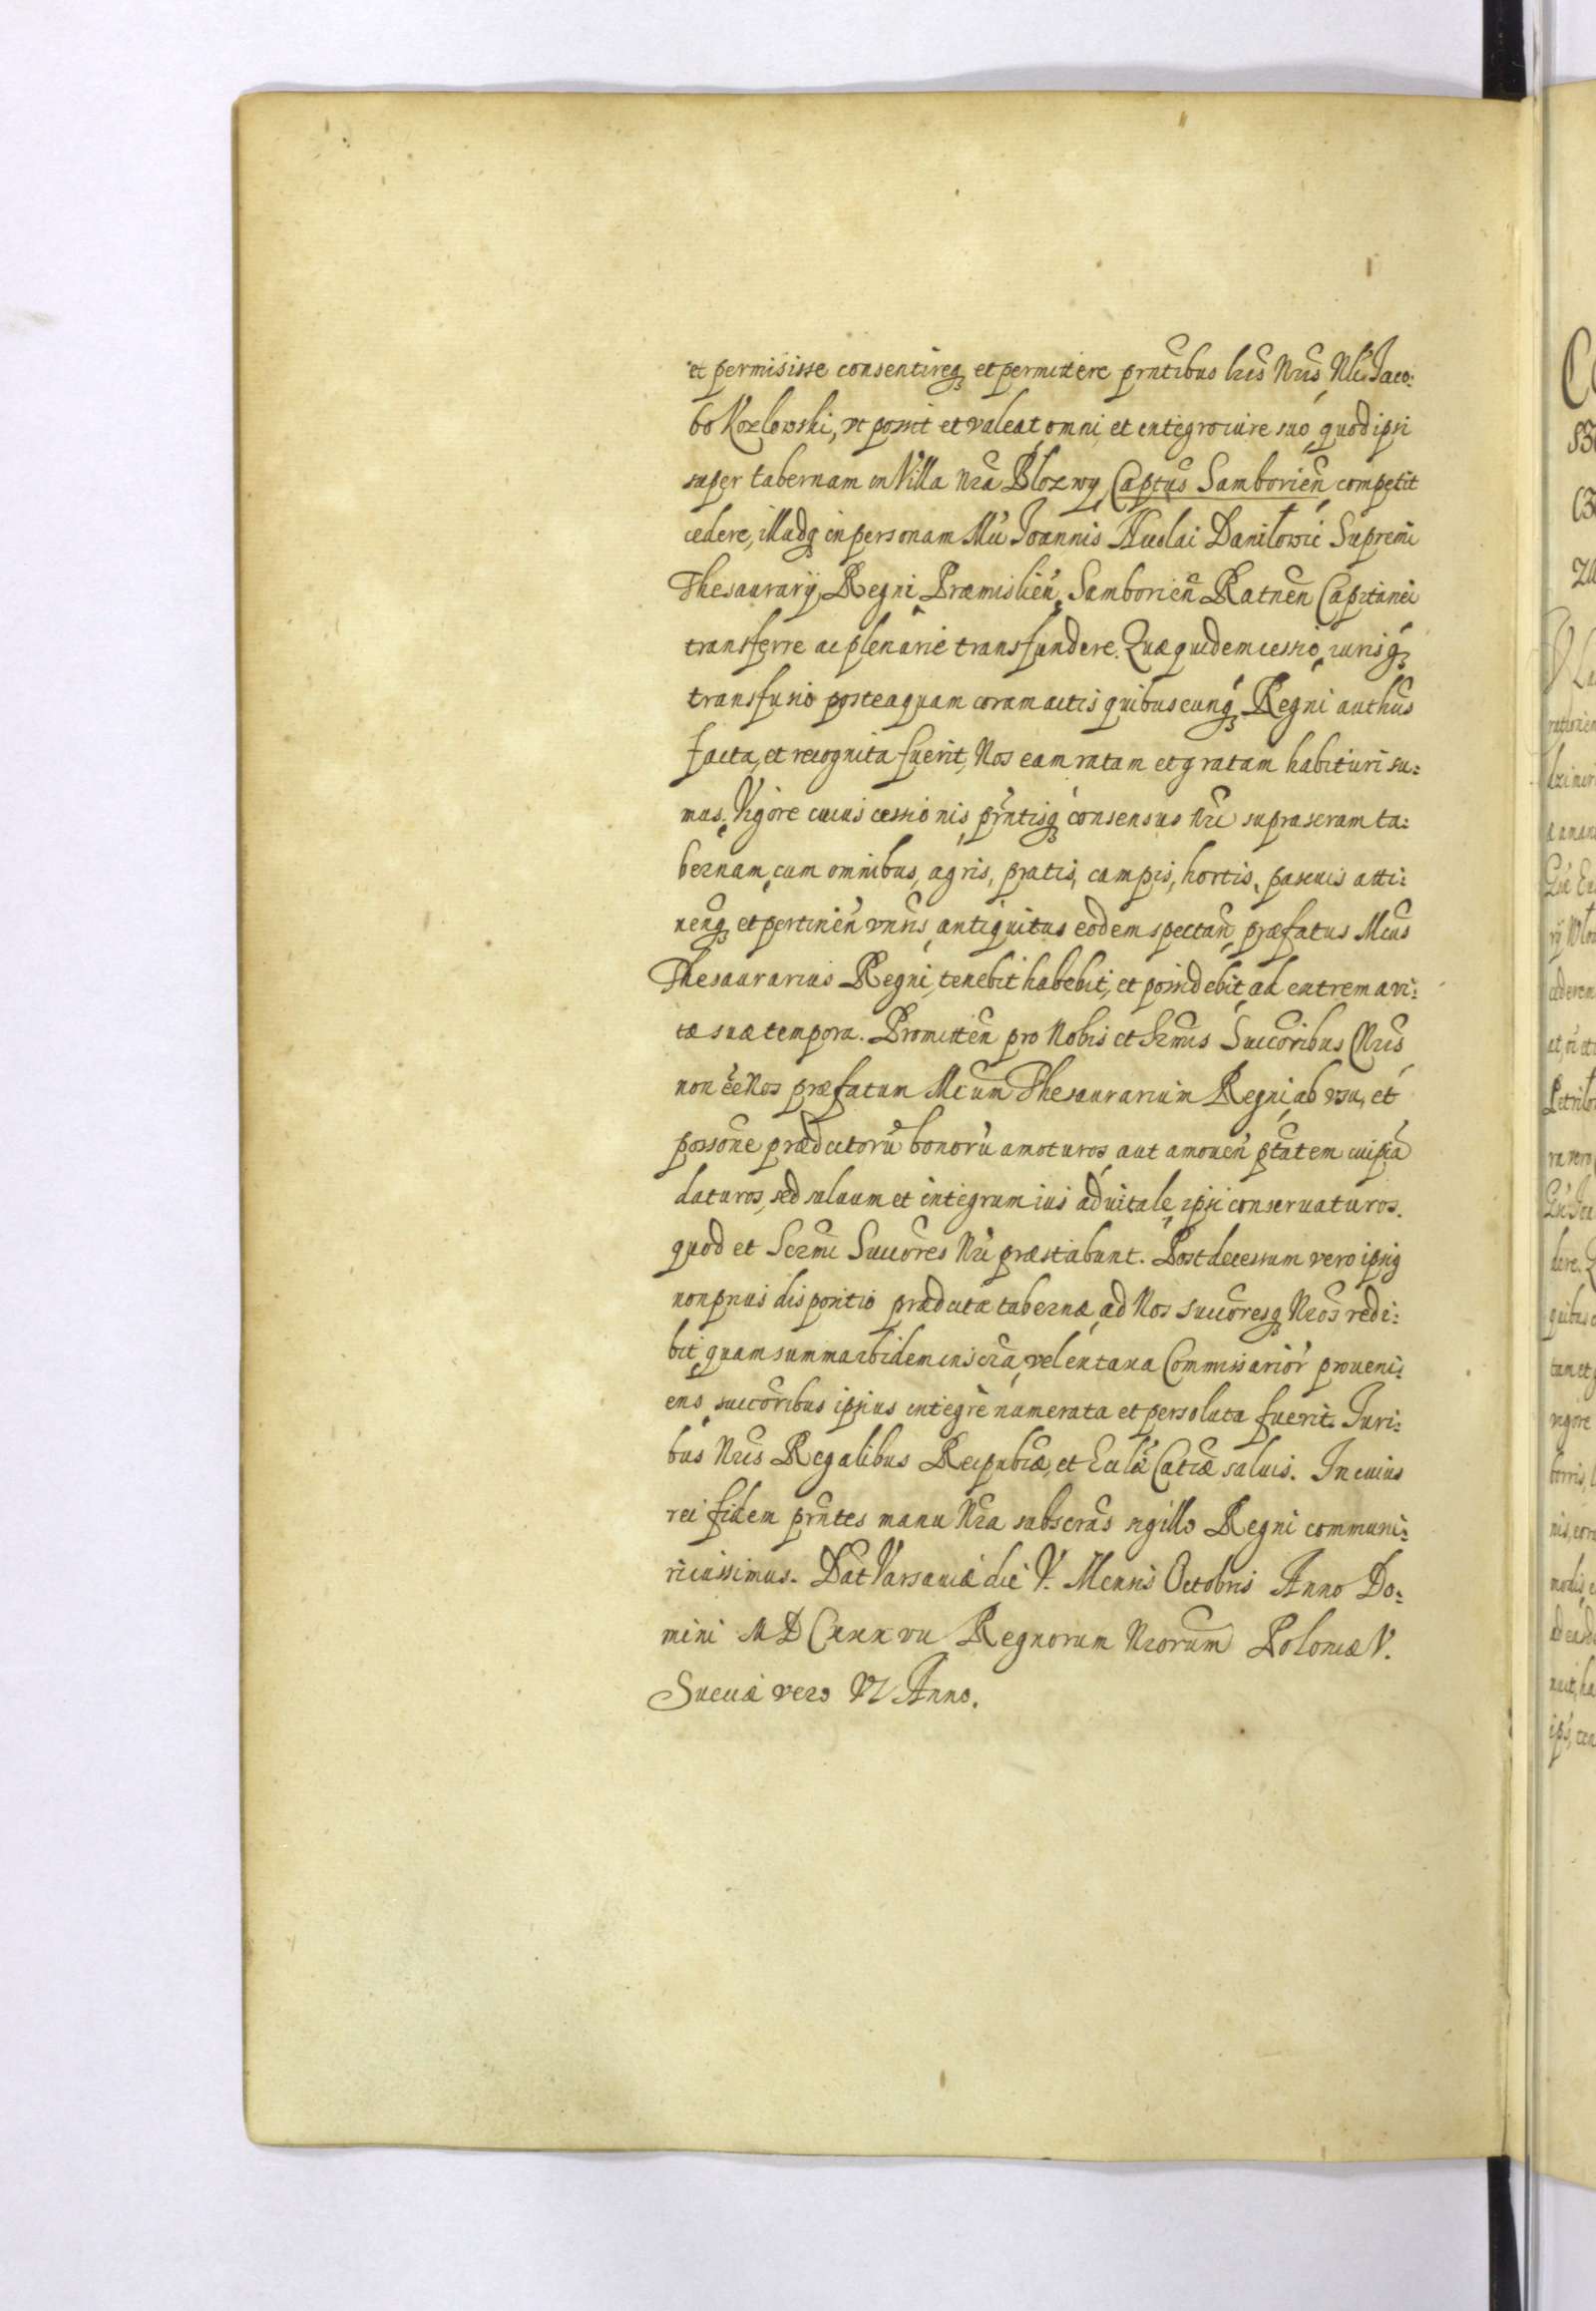 et permisisse consentireq₃ et permittere prñtibus lr̃is Nr̃is Nli Jaco:
bo Kozlowski, vt possit et valeat omni et integro iure suo, quod ipsi
super tabernam in Villa nr̃a Blozwy Captus Samborien̄ competit
cedere, illudq₃ in personam Mci Joannis Nicolai Daniłowic Supremi
Thesaurarij Regni Præmislien̄, Samborien̄ Ratnen̄ Capitanei
transferre ac plenarie transfundere. Quæ quidem cessio, iurisq₃
transfusio posteaquam coram actis quibuscunq₃ Regni authcis
facta, et recognita fuerit, Nos eam ratam et gratam habituri su:
mus. Vigore cuius cessionis, prñtisq₃ consensus nr̃i suprascram ta:
bernam, cum omnibus, agris, pratis, campis, hortis, pascuis atti:
nenq₃ et pertinen̄ vnīis, antiquitus eodem spectan̄, præfatus Mcus
Thesaurarius Regni, tenebit habebit, et possidebit, ad extrema vi:
tæ suæ tempora. Promitten̄ pro Nobis et Sermis Succoribus Nr̃is
non ēē Nos præfatum Mcum Thesaurarium Regni, ab vsu, et
possone prædictorū bonorū amoturos, aut amouen̄ ptatem cuipiā
daturos, sed saluum et integrum ius aduitale ipsi conseruaturos.
quod et Sermi Succores Nr̃i præstabunt. Post decessum vero ipsig
non prius dispositio prædictæ tabernæ, ad Nos succoresq₃ Nr̃os redi:
bit, quam summa ibidem inscr̃a, vel ex taxa Commissarior̄ proueni:
ens, succoribus ipsius integrè numerata et persoluta fuerit. Juri:
bus Nr̃is Regalibus Reipubcæ, et Ecclæ Catcæ saluis. In cuius
rei fidem prñtes manu Nr̃a subscras sigillo Regni communi:
ri iussimus. Dat Varsauiæ die V. Mensis Octobris Anno Do:
mini MDCxxxvii Regnorum Nr̃orum Poloniæ V.
Sueciæ vero VI Anno.